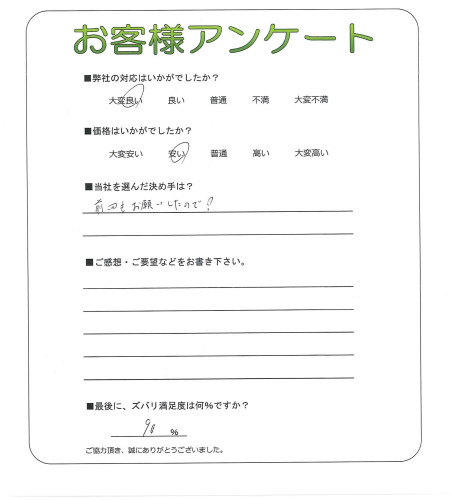 お客様アンケート
■弊社の対応はいかがでしたか？
大変良い 良い 普通 不満 大変不満
■価格はいかがでしたか？
大変安い 安い 普通 高い 大変高い
■当社を選んだ決め手は？
前回もお願いしたので！
■ご感想・ご要望などをお書き下さい。
■最後に、ズバリ満足度は何%ですか？
90 %
ご協力頂き、誠にありがとうございました。